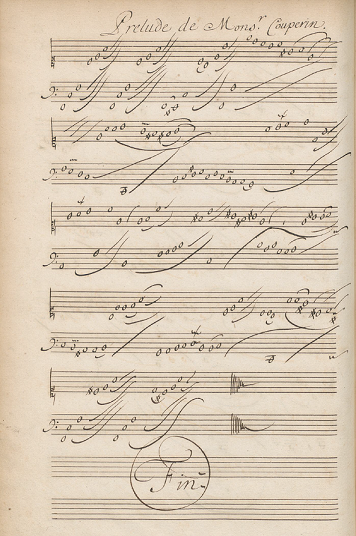 Prelude de Mons.r Couperin.
Fin